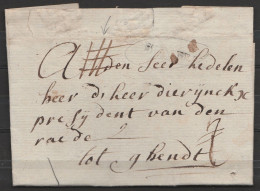 A den seer hedelen
heer d'heer dierijnckx
presydent van den
raede
tot ghendt